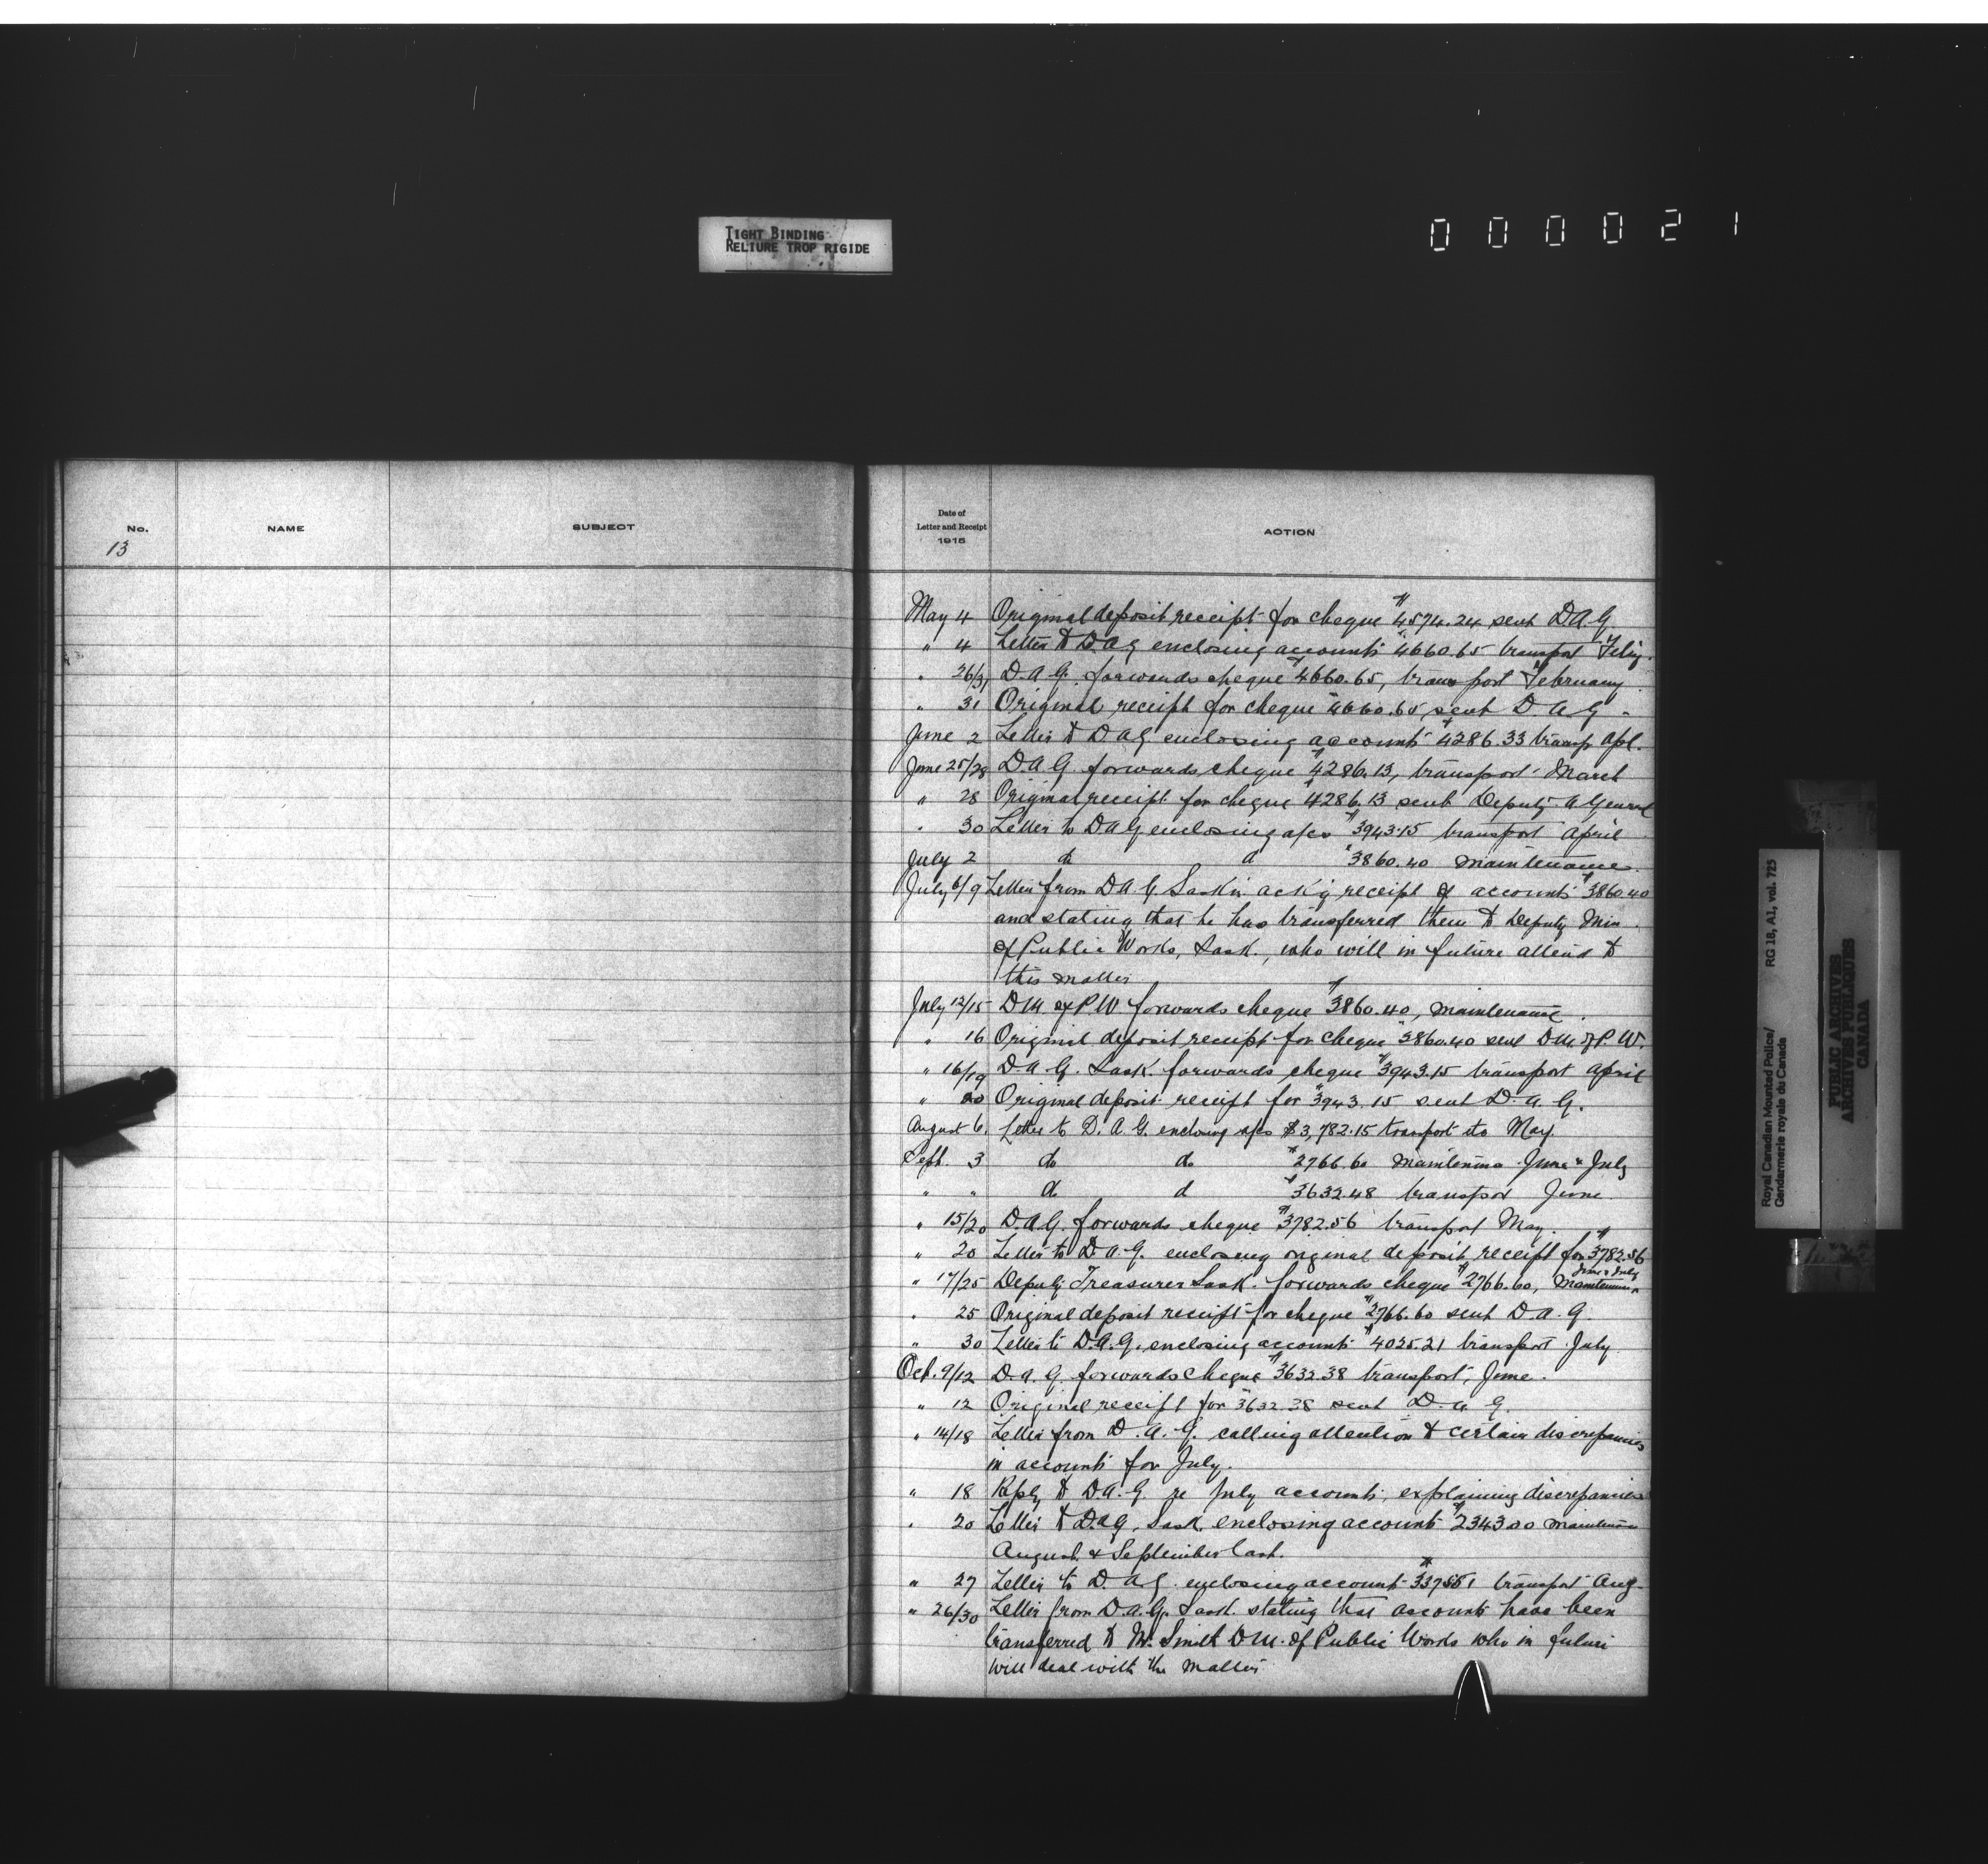 TIGHT BINDING
RELIURE TROP RIGIDE
0 0 0 0 2 1
No.
NAME
SUBJECT
13
Date of
Letter and Receipt
1915
ACTION
May 4 Original deposit receipt for cheque $4574.24 sent D.A.G.
" 4 Letter to D.A.G enclosing accounts $4660.65 transport Feby.
" 26/31 D.A.G. forwards cheque $4660.65, transport February.
" 31 Original receipt for cheque $4660.65 sent D.A.G.
June 2 Letter to D.A.G. enclosing accounts $4286.33 transp. Apl.
June 25/28 D.A.G. forwards cheque $4286.13, transport March
" 28 Original receipt for cheque $4286.13 sent Deputy A General
" 30 Letter to D.A.G enclosing a/cs $3943.15 transport April
July 2 do d $3860.40 maintenance.
July 6/9 Letter from D.A.G. Sask'n ack'g receipt of accounts $3860.40
and stating that he has transferred them to Deputy Min.
of Public Works, Sask., who will in future attend to
this matter
July 12/15 D.M. of P.W forwards cheque $3860.40, maintenance.
" 16 Original deposit receipt for cheque $3860.40 sent D.M. of P.W.
" 16/19 D.A.G. Sask. forwards cheque $3943.15 transport April
" 20 Original deposit receipt for $3943.15 sent D.A.G.
August 6. Letter to D.A.G. enclosing a/cs $3,782.15 transport etc May.
Sept. 3 do do $2766.60 maintenance June & July
" " do d $3632.48 transport June.
" 15/20 D.A.G. forwards cheque $3782.56 transport May.
" 20 Letter to D.A.G. enclosing original deposit receipt for $3782.56
" 17/25 Deputy Treasurer Sask. forwards cheque $2766.60, Maintenance June & July
" 25 Original deposit receipt for cheque $2766.60 sent D.A.G.
" 30 Letter to D.A.G. enclosing accounts $4025.21 transport July.
Oct. 9/12 D.A.G. forwards cheque $3632.38 transport, June.
" 12 Original receipt for $3632.38 sent D.A.G.
" 14/18 Letter from D.A.G. calling attention to certain discrepancies
in accounts for July.
" 18 Reply to D.A.G. re July accounts, explaining discrepancies
" 20 Letter to D.A.G. Sask. enclosing accounts $2343.00 maintenance
August & September last.
" 27 Letter to D.A.G. enclosing account transport Aug.
" 26/30 Letter from D.A.G. Sask. stating that accounts have been
transferred to Mr. Smith D.M. of Public Works who in future
will deal with the matter
Royal Canadian Mounted Police/
Gendarmerie royale du Canada
RG 18, A1, vol. 725
PUBLIC ARCHIVES
ARCHIVES PUBLIQUES
CANADA